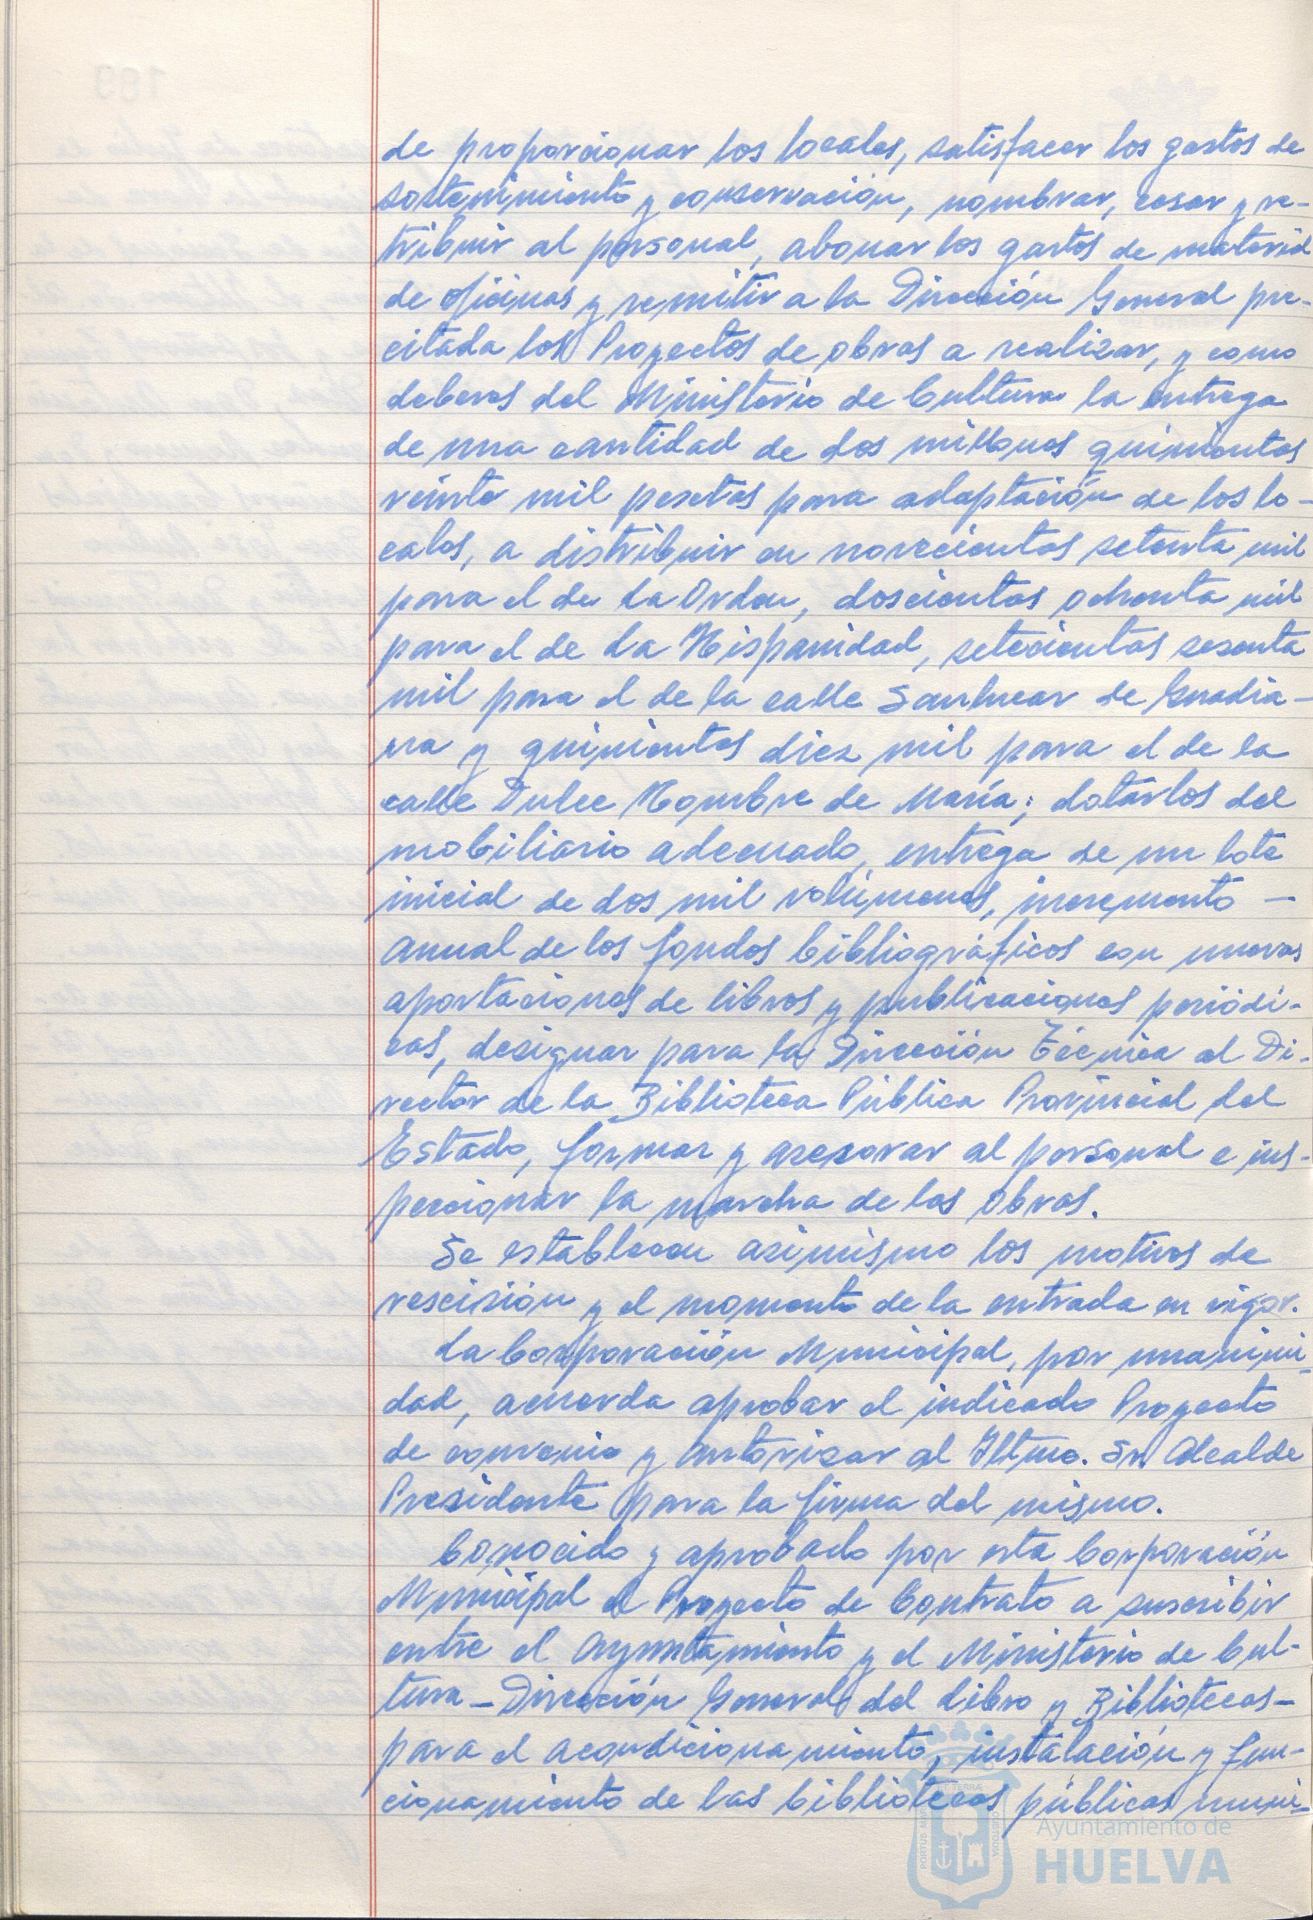 de proporcionar los locales, satisfacer los gastos de
sostenimiento y conservación, nombrar, cesar y re-
tribuir al personal, abonar los gastos de material
de oficinas y remitir a la Dirección General pre-
citada los Proyectos de obras a realizar, y como
deberes del Ministerio de Cultura la entrega
de una cantidad de dos millones quinientas
veinte mil pesetas para adaptación de los lo-
cales, a distribuir en novecientas setenta mil
para el de La Orden, doscientas ochenta mil
para el de La Hispanidad, setecientas sesenta
mil para el de la calle Sanlucar de Guadia-
na y quinientas diez mil para el de la
calle Dulce Nombre de María; dotarlos del
mobiliario adecuado, entrega de un lote
inicial de dos mil volúmenes, incremento -
anual de los fondos bibliográficos con nuevas
aportaciones de libros y publicaciones periódi-
cas, designar para la Dirección Técnica al Di-
rector de la Biblioteca Pública Provincial del
Estado, formar y asesorar al personal e ins-
peccionar la marcha de las obras.
Se establecen asimismo los motivos de
rescisión y el momento de la entrada en vigor.
La Corporación Municipal, por unanimi-
dad, acuerda aprobar el indicado Proyecto
de convenio y autorizar al Iltmo. Sr. Alcalde
Presidente para la firma del mismo.
Conocido y aprobado por esta Corporación
Municipal el Proyecto de Contrato a suscribir
entre el Ayuntamiento y el Ministerio de Cul-
tura - Dirección General del Libro y Bibliotecas -
para el acondicionamiento, instalación y fun-
cionamiento de las bibliotecas públicas muni-
Ayuntamiento de
HUELVA